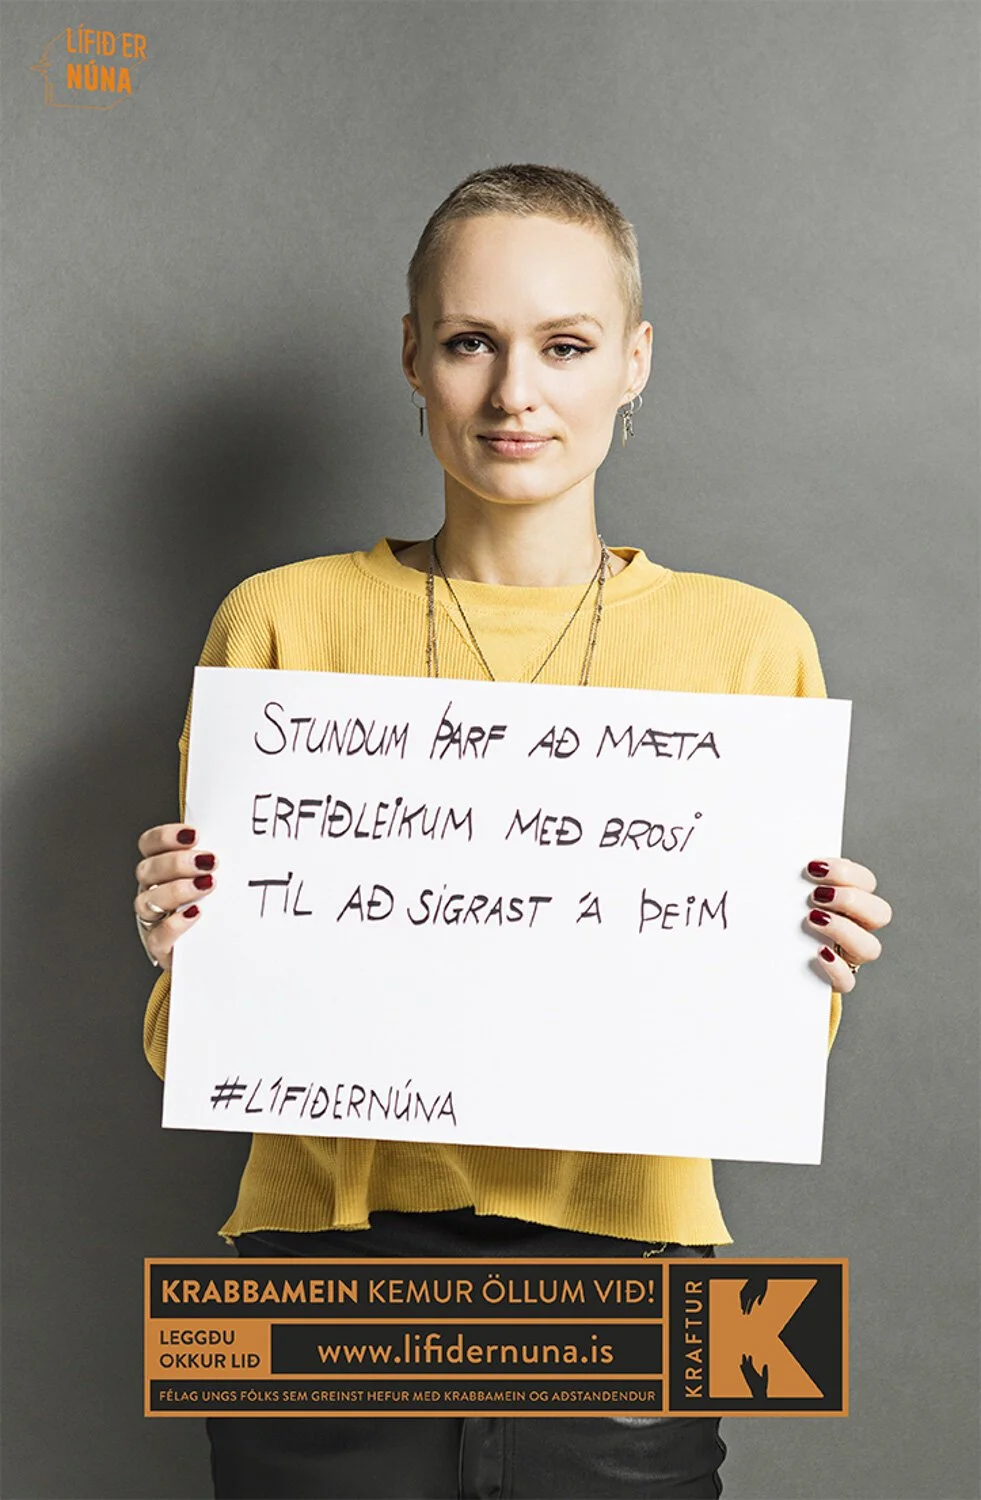 LÍFIÐ ER
NÚNA
STUNDUM ÞARF AÐ MÆTA
ERFIÐLEIKUM MEÐ BROSI
TIL AÐ SIGRAST Á ÞEIM
#LÍFIÐERNÚNA
KRABBAMEIN KEMUR ÖLLUM VIÐ!
LEGGÐU
OKKUR LIÐ
www.lifidernuna.is
FÉLAG UNGS FÓLKS SEM GREINST HEFUR MEÐ KRABBAMEIN OG AÐSTANDENDUR
KRAFTUR
K